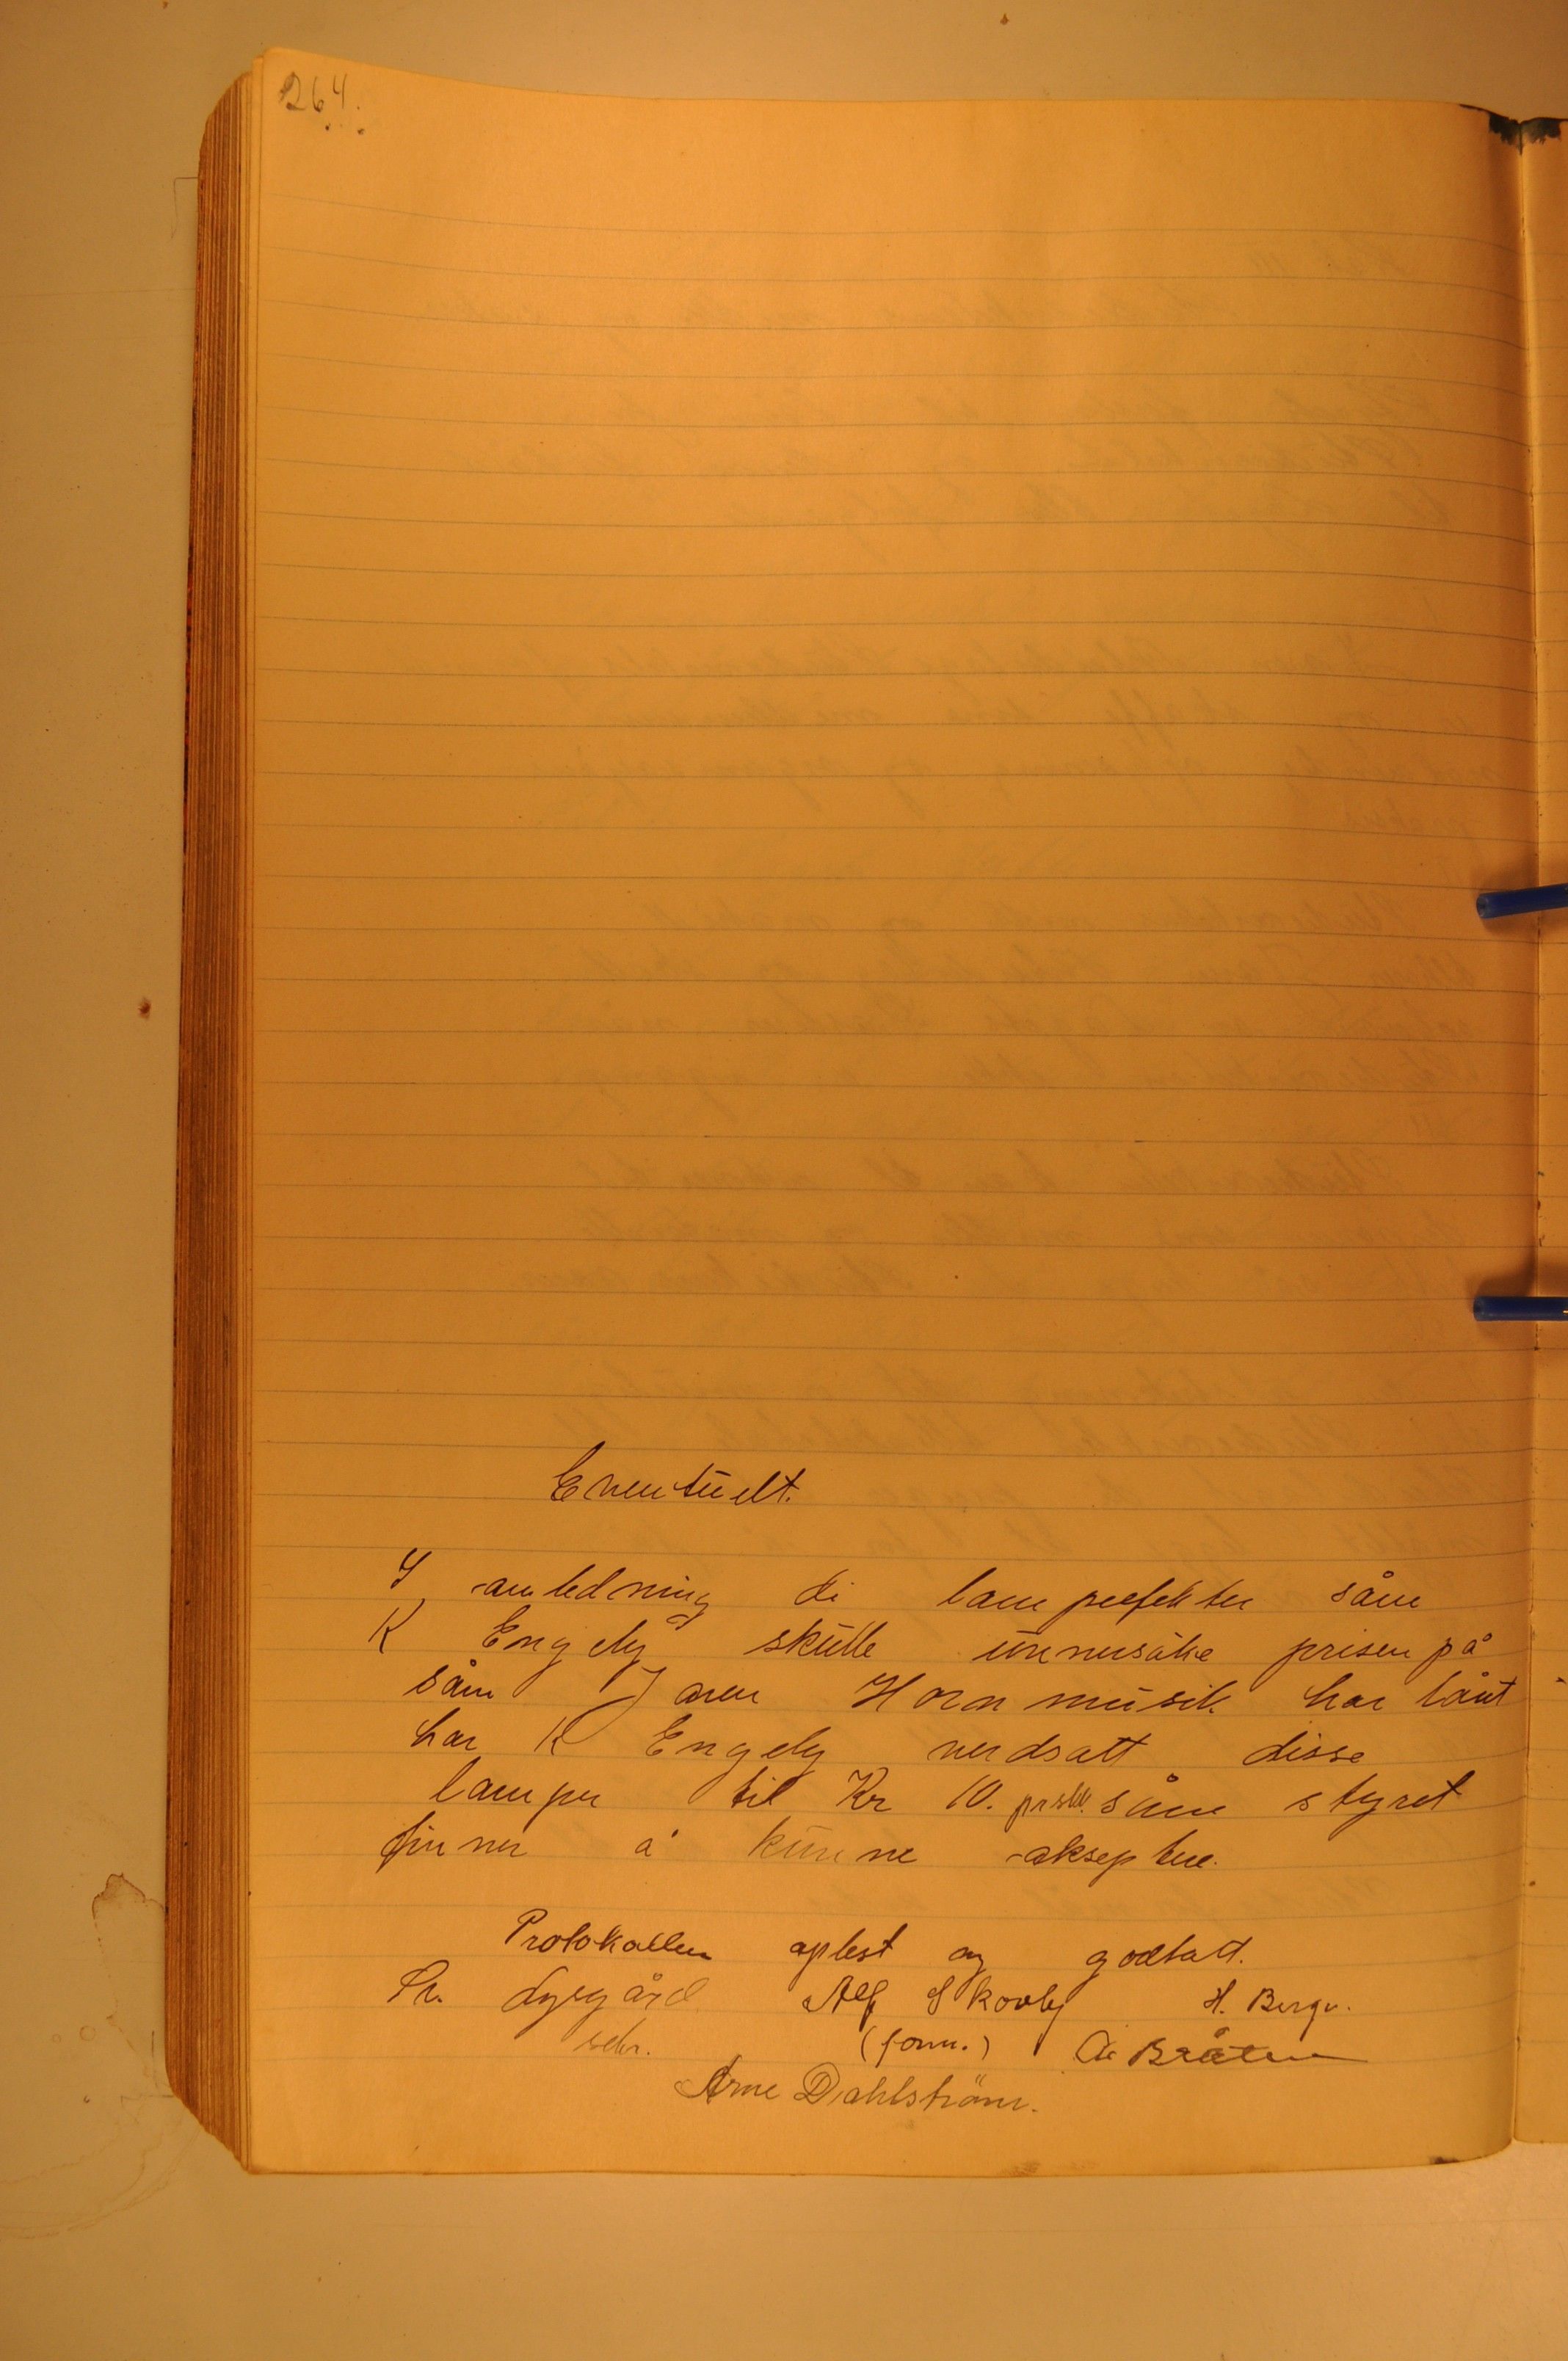 264.
Eventuelt.
I anledning di lampeefekter såm
K Engely skulle unnersøke prisen på
såm Jaren Hornmusik har lånt
har K Engely verdsatt disse
lamper til Kr 10. pr stk. såm styret
finner å kunne akseptere.
Protokollen oplest og godtatt.
Lysgård Alf Skovly H. Berge.
sekr. (form.) Bråten
Arne Dahlström.